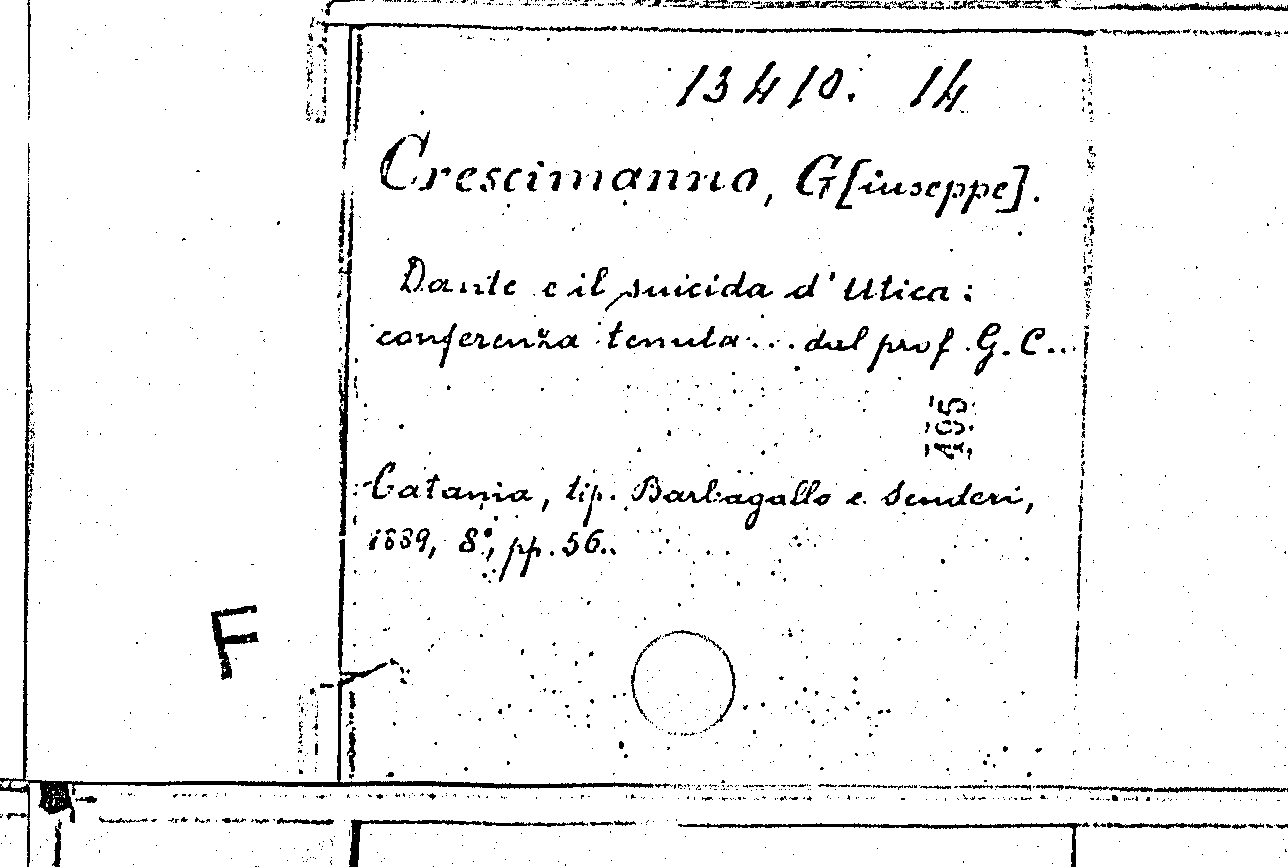 13410. 14
Crescimanno, G[iuseppe].
Dante e il suicida d'Utica:
conferenza tenuta... dal prof. G. C...
495
Catania, tip. Barbagallo e Scuderi,
1889, 8°, pp. 56..
F